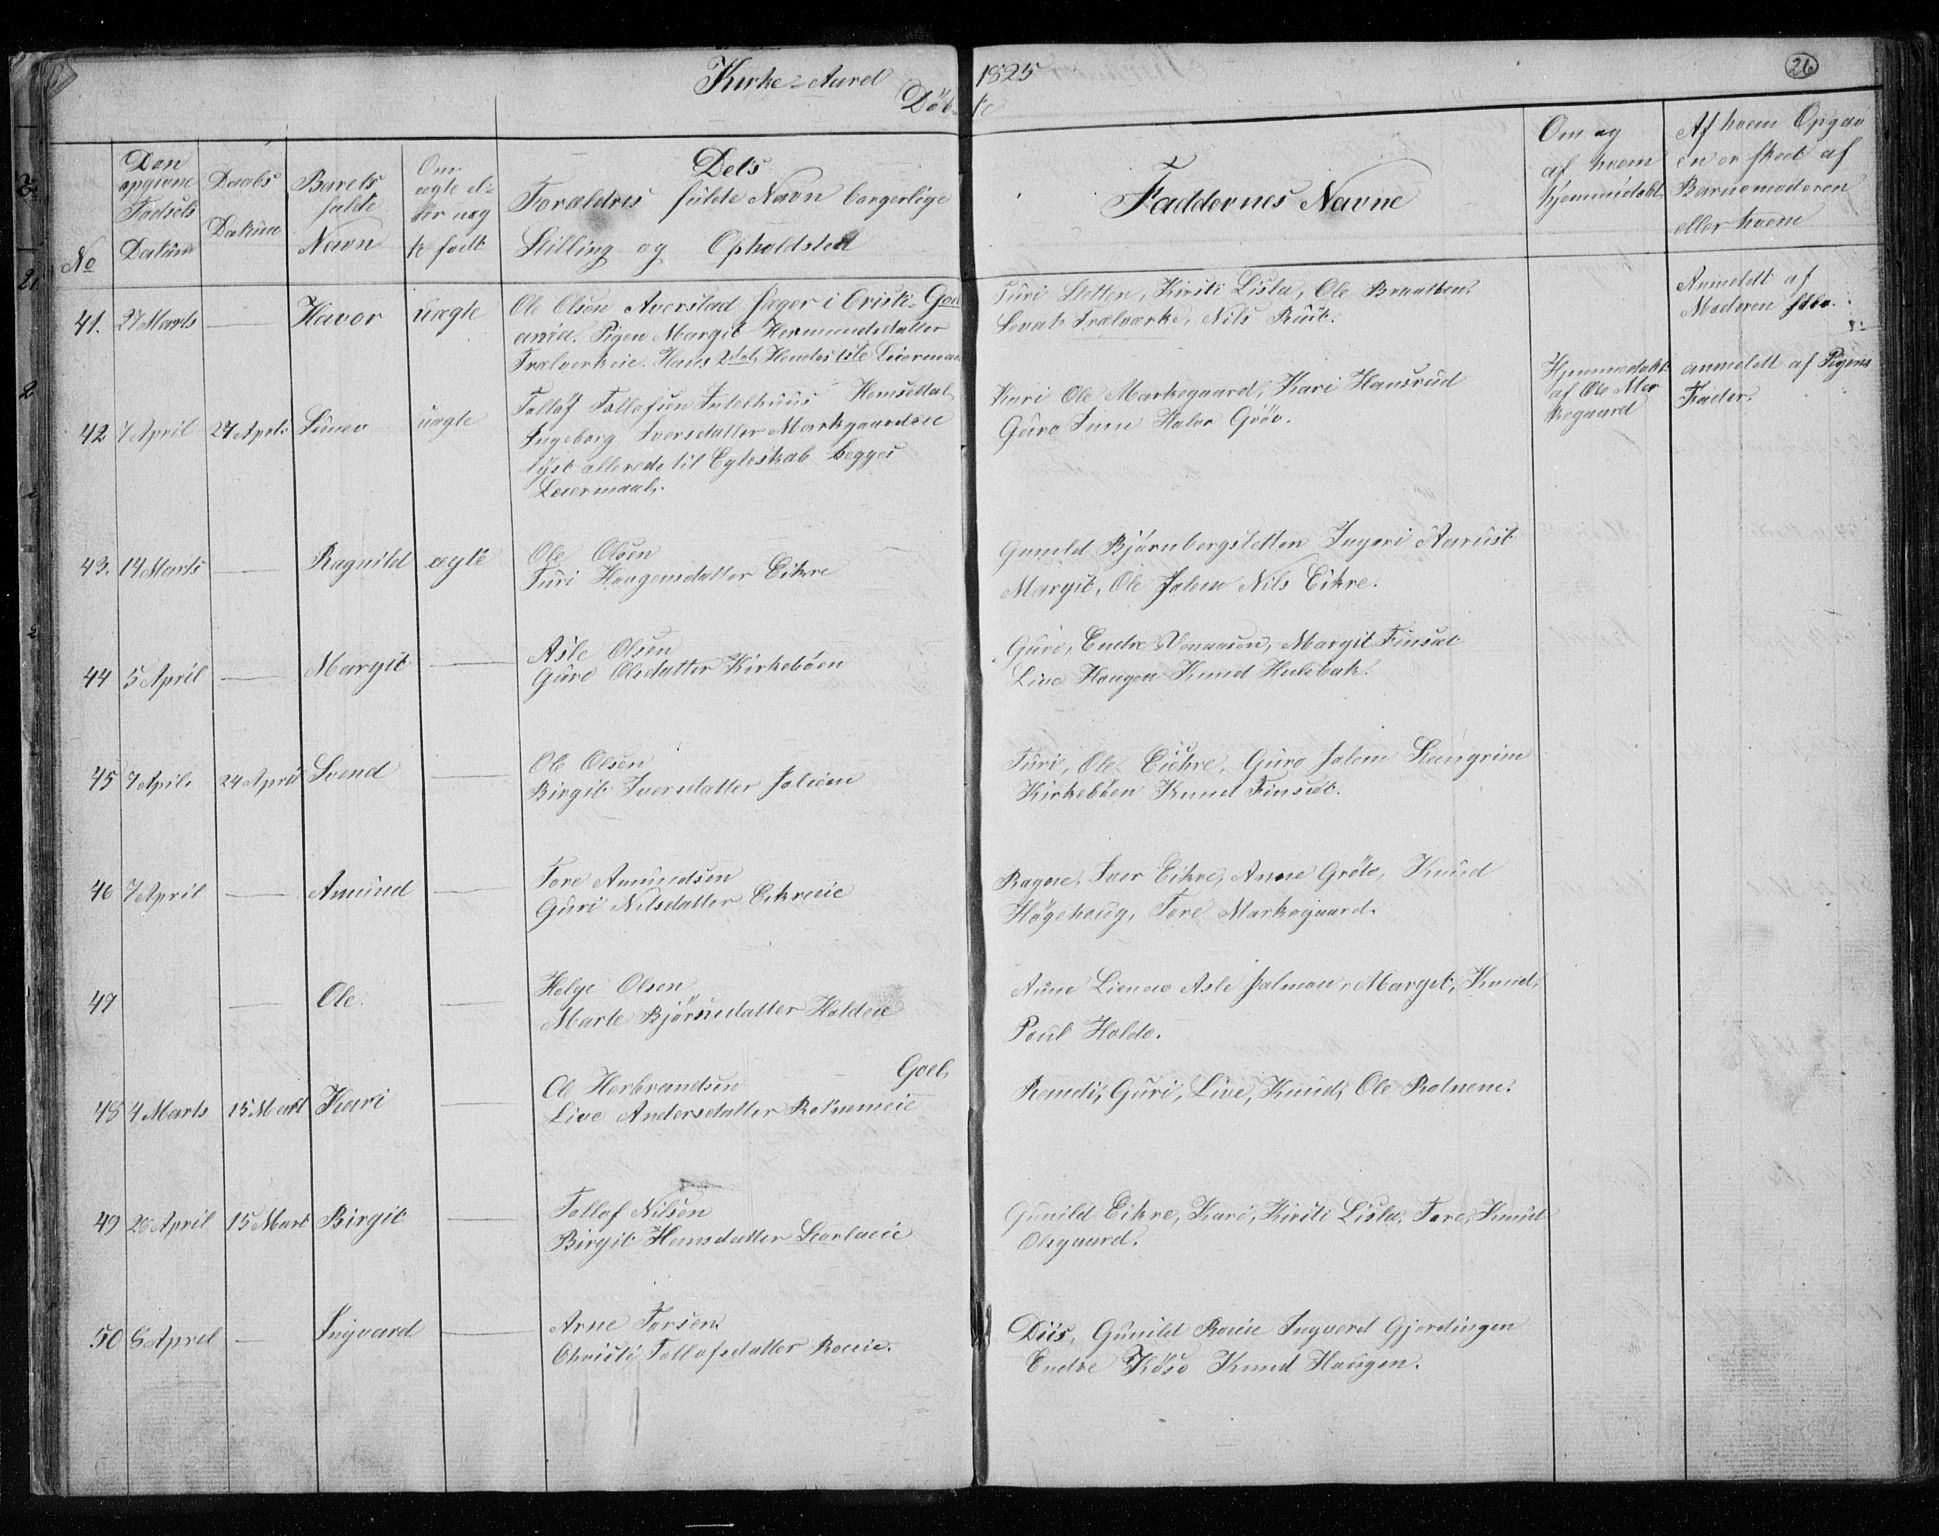 Kirke-Aaret 1825
26
Döbte
No
Den opgivne Fødsels Datum
Daabs Datum
Barets fulde Navn
Om ægte eller uægte født
Dets
Forældres fulde Navn borgerlige
Stilling og Opholdsted
Faddernes Navne
Om og af hvem hjemmedøbt
Af hvem Opgav
en er skeet af
Barnemoderen
eller hvem
41. 27 Marts — Havor uægte
Ole Olsen Averstad Jæger i Cristi- Goel
ania. Pigen Margit Hermundsdatter
Trælverkeie. Hans 2det, Hendes 1ste Leiermaal
Turi Sletten, Kirsti Lisla, Ole Braatten,
Sevat Trælverke, Nils Rust.
Anmeldt af
Moderen selv.
42 7 April 24 April Simen uægte
Tollof Tollofsen Hemsedal
Ingeborg Iversdatter Markegaardseie
lyst allerede til Egteskab begges
Leiermaal.
Kari Ole Markegaard, Kari Hausrud
Guro Halvor Grøv.
Hjemmedøbt
af Ole Mar
kegaard
anmeldt af Pigens
Fader.
43. 14 Marts — Ragnild ægte
Ole Olsen
Turi Haagensdatter Eikre
Gunild Bjørnbergsletten Ingeri Aarust
Margit, Ole Jalem Nils Eikre.
44 5 April — Margit —
Asle Olsen
Guro Olsdatter Kirkebøen
Guro, Endre Venaasen, Margit Finset
Live Haugen Knud Hulebak.
45 7 April 24 April Svend —
Ole Olsen
Birgit Iversdatter
Turi, Ole Eickre, Guro Jalem Steingrim
Kirkebøen Knud Finset.
46 7 April — Amund —
Tore Amundsen
Guri Nilsdatter Eikreeie
Ragne, Iver Eikre, Anne Gröto, Knud
Høgehaug, Tore Markegaard.
47 — Ole. —
Helge Olsen
Marte Bjørnsdatter Holdeie
Anne Asle Margit, Knud,
Poul Holde.
48 4 Marts 15 Mart Kari —
Ole Herbrandsen Goel,
Live Andersdatter Rotnemeie
Randi, Guri, Live, Knud, Ole Rotnem.
49 20 April 15 Mart Birgit —
Tollof Nilsen
Birgit Hansdatter
Gunild Eikre, Kari, Kirsti Lisla, Tore, Knud
Olsgaard.
50 6 April — Ingvard —
Arne Torsen
Christi Tollofsdatter Roeie.
Diis, Gunild Roeie Ingverd Gjerdingen
Endre Knud Haugen.